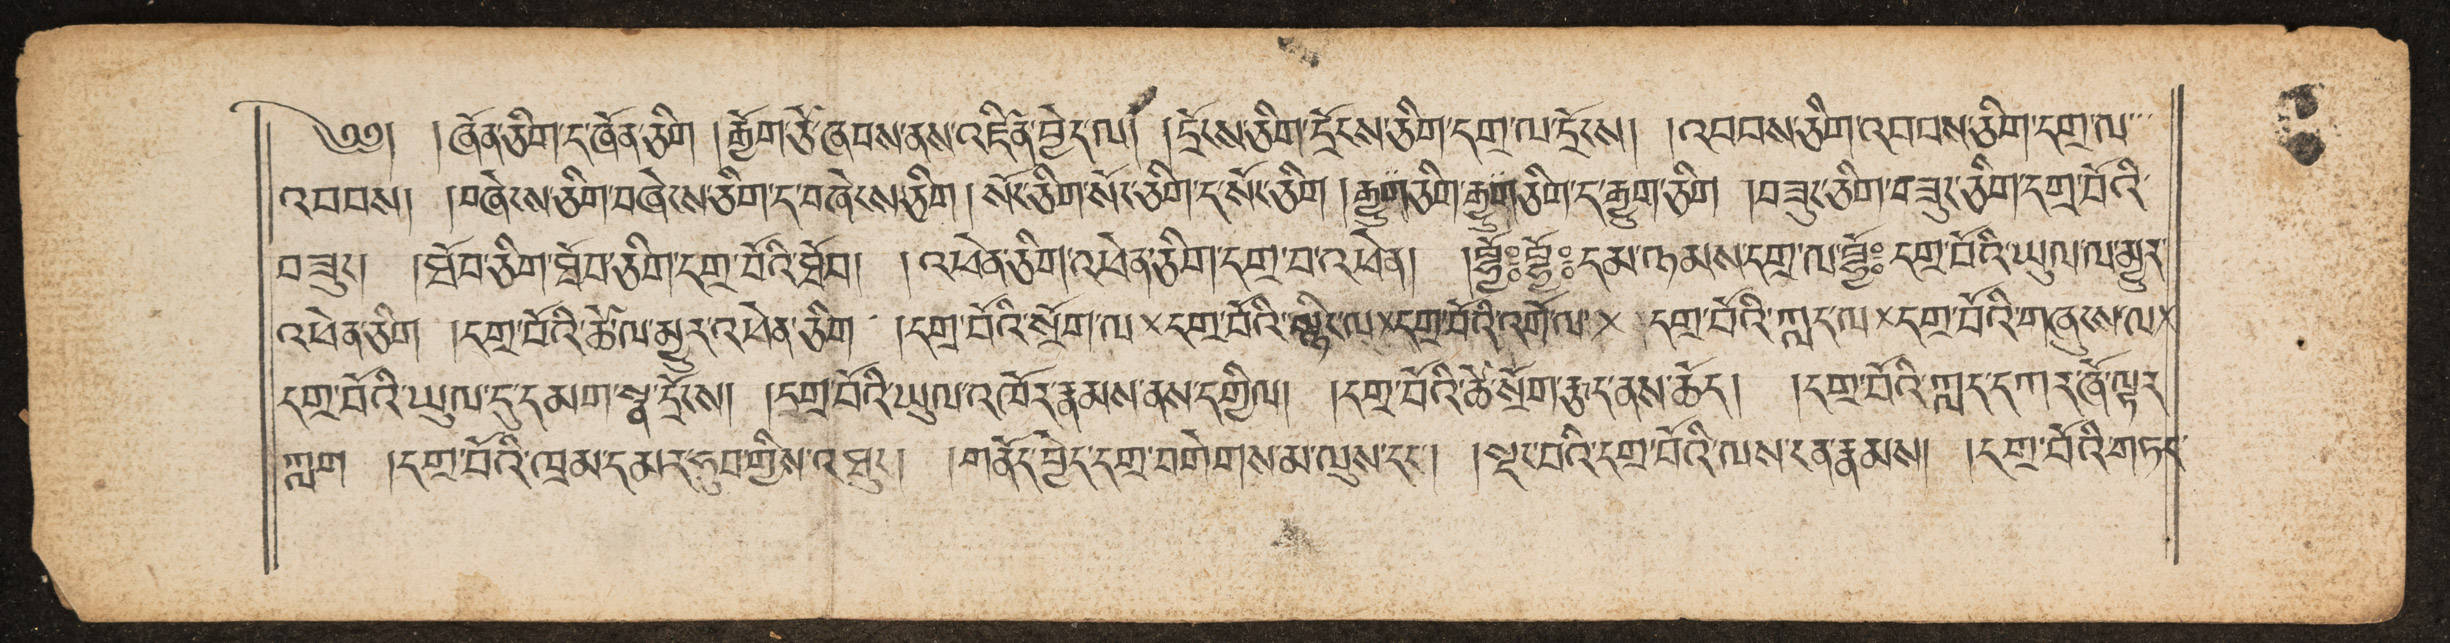 ༄༅། །ཞོན་ཅིག་ད་ཞོན་ཅིག །རྒྱོག་ཙེ་ཞབས་ནས་འཛིན་བྱེད་ལ། །དྲོངས་ཅིག་དྲོངས་ཅིག་དགྲ་ལ་དྲོངས། །འབབས་ཅིག་འབབས་ཅིག་དགྲ་ལ་
འབབས། །བཞེངས་ཅིག་བཞེངས་ཅིག་ད་བཞེངས་ཅིག །སོང་ཅིག་སོང་ཅིག་ད་སོང་ཅིག །རྒྱུག་ཅིག་རྒྱུག་ཅིག་ད་རྒྱུག་ཅིག །བཟླུང་ཅིག་བཟླུང་ཅིག་དགྲ་བོའི་
བཟླུང། །ཕྲོབ་ཅིག་ཕྲོབ་ཅིག་དགྲ་བོའི་ཕྲོབ། །འཕེན་ཅིག་འཕེན་ཅིག་དགྲ་བ་འཕེན། །བྷྱོཿབྷྱོཿ་དམ་ཉམས་དགྲ་ལ་བྷྱོཿ་དགྲ་བོའི་ཡུལ་ལ་མྱུར་
འཕེན་ཅིག །དགྲ་བོའི་ཚེ་ལ་མྱུར་འཕེན་ཅིག །དགྲ་བོའི་སྲོག་ལ་×དགྲ་བོའི་སྙིང་ལ་×དགྲ་བོའི་འགོ་ལ་× དགྲ་བོའི་ཀླད་ལ་×དགྲ་བོའི་གཞུངས་ལ་×
དགྲ་བོའི་ཡུལ་དུ་དམག་སྣ་དྲོངས། །དགྲ་བོའི་ཡུལ་འཁོར་རྣམས་ནས་དཀྱིལ། །དགྲ་བོའི་ཚེ་སྲོག་རྩད་ནས་ཆོད། །དགྲ་བོའི་ཀླད་དཀར་ཞོ་ལྟར་
ཀླག །དགྲ་བོའི་ཁྲམ་དམར་ཧུབ་ཀྱིས་འཐུང། །གནོད་བྱེད་དགྲ་བགེགས་མ་ལུས་དང༌། །སྡང་བའི་དགྲ་བོའི་ལས་ངན་རྣམས། །དགྲ་བོའི་གཏད་